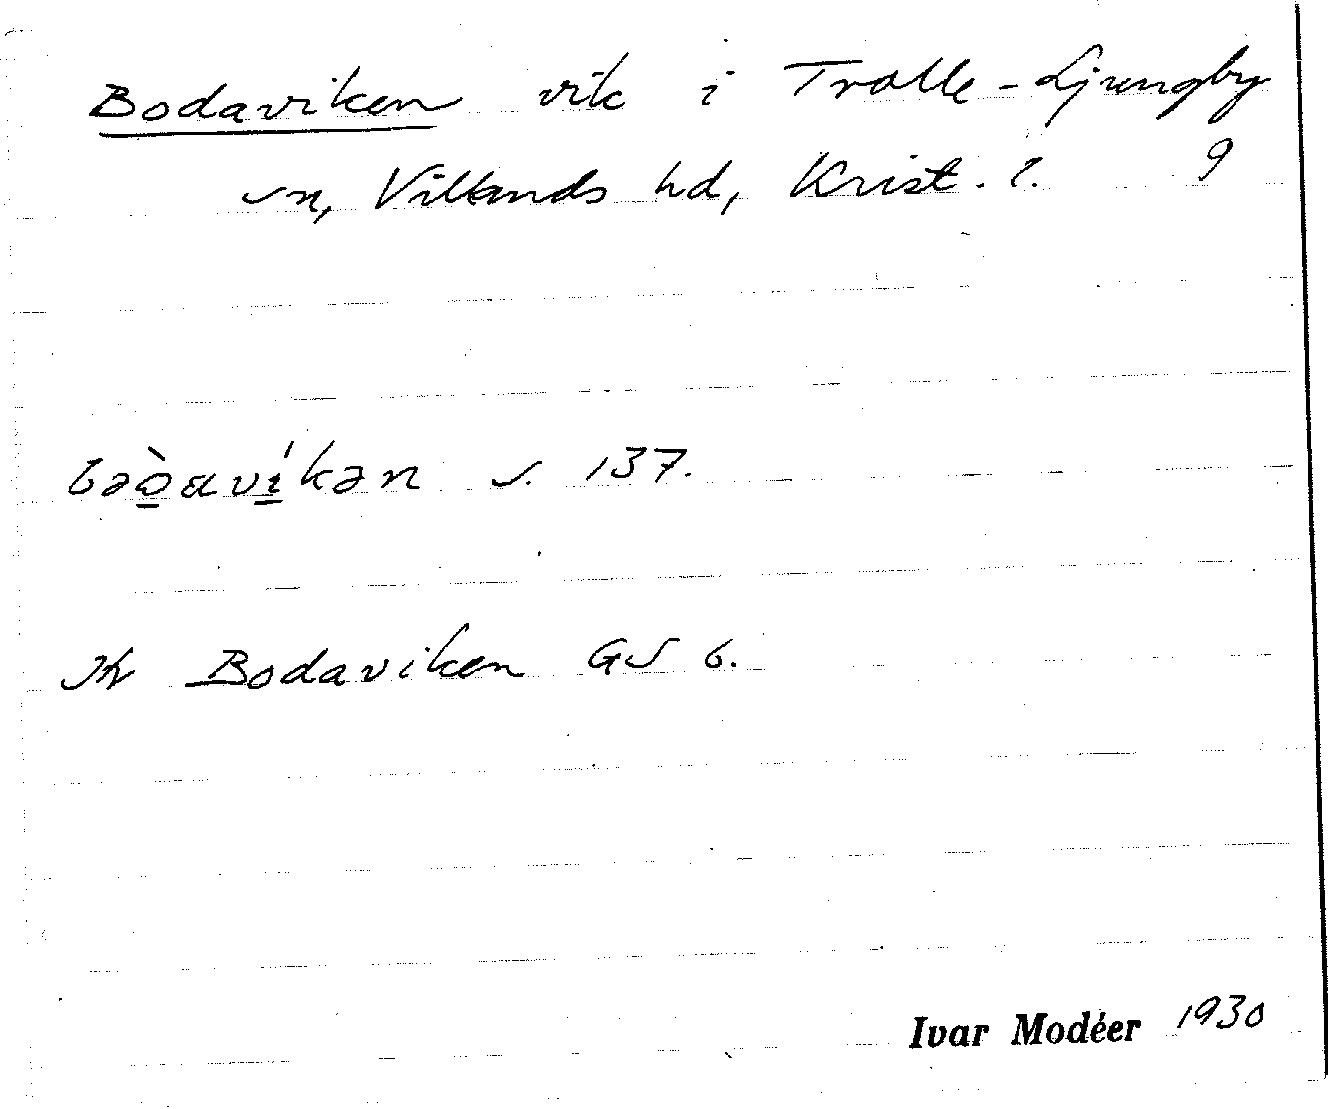 Bodaviken vik i Trolle-Ljungby
sn, Villands hd, Krist. l. 9
s. 137.
Jk Bodaviken GS 6.
Ivar Modéer 1930